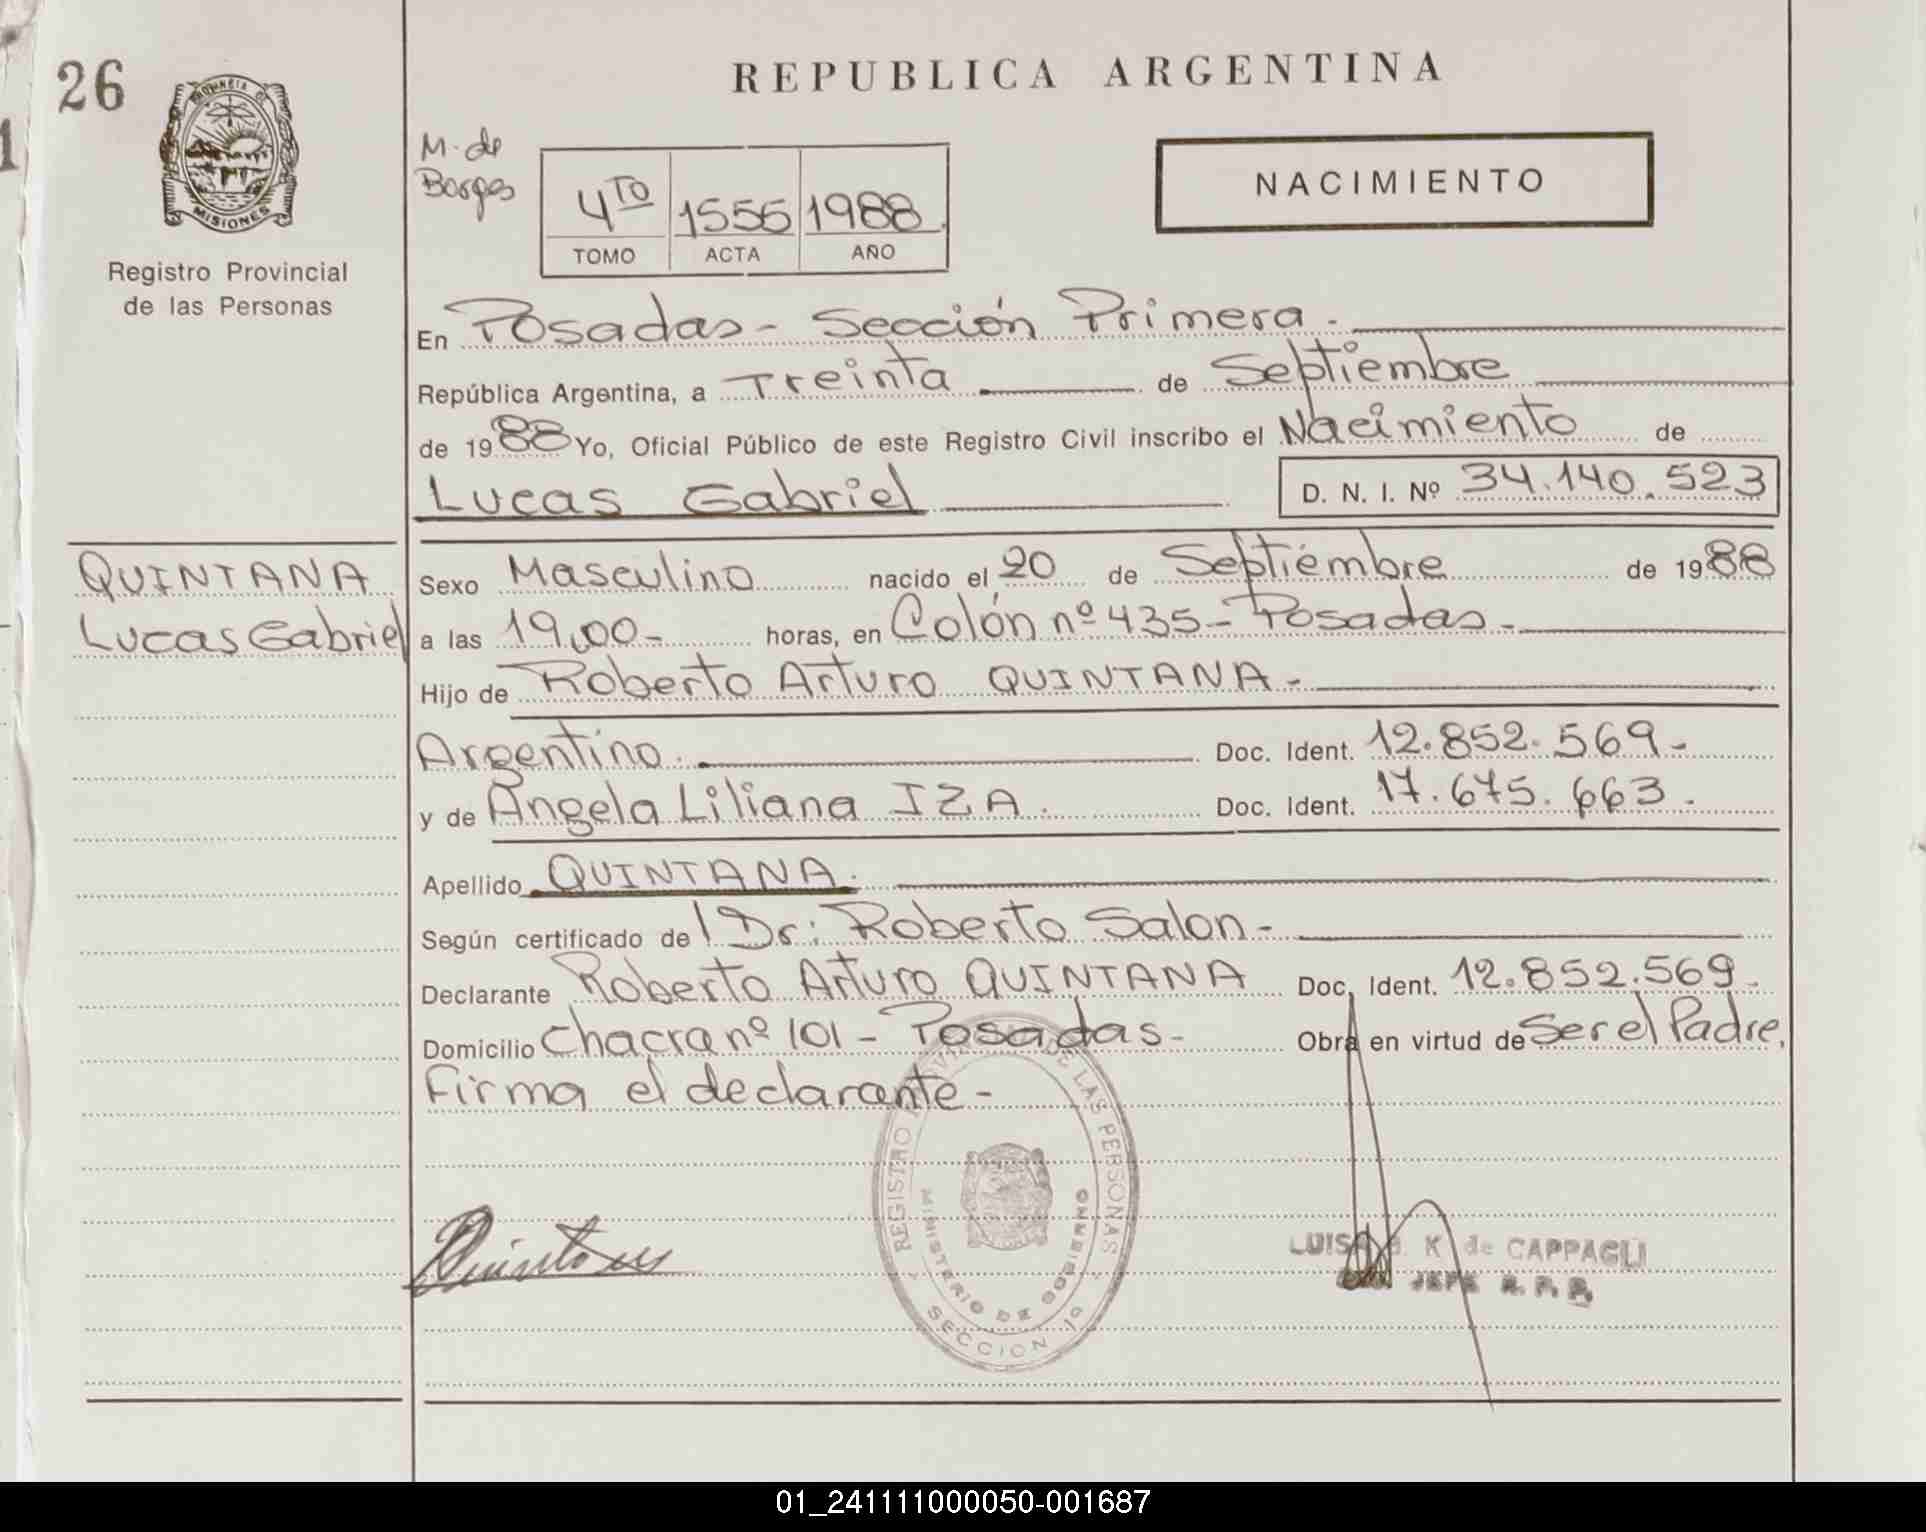 26
PROVINCIA DE
MISIONES
Registro Provincial
de las Personas
REPUBLICA ARGENTINA
M. de
Borges
4TO 1556 1988
TOMO ACTA AÑO
NACIMIENTO
En Posadas - Sección Primera.
República Argentina, a Treinta de Septiembre
de 1988 Yo, Oficial Público de este Registro Civil inscribo el Nacimiento de
Lucas Gabriel D. N. I. Nº 34.140.523
QUINTANA
Lucas Gabriel
Sexo Masculino nacido el 20 de Septiembre de 1988
a las 19,00- horas, en Colón nº 435 - Posadas -
Hijo de Roberto Arturo QUINTANA -
Argentino. Doc. Ident. 12.852.569-
y de Angela Liliana IZA. Doc. Ident. 17.675.663.
Apellido QUINTANA.
Según certificado del Dr: Roberto Salon -
Declarante Roberto Arturo QUINTANA Doc. Ident. 12.852.569-
Domicilio Chacra nº 101 - Posadas - Obra en virtud de Ser el Padre,
Firma el declarante -
REGISTRO PROVINCIAL DE LAS PERSONAS
MINISTERIO DE GOBIERNO
SECCION 1ª
Quintana
LUISA B. K de CAPPAGLI
JEFE R. P. P.
01_241111000050-001687